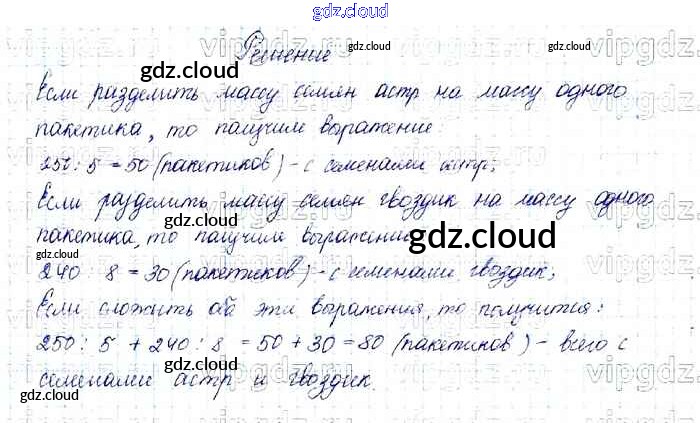 gdz.cloud
Решение
Если разделить массу семян астр на массу одного
пакетика, то получим выражение:
250 : 5 = 50 (пакетиков) - с семенами астр;
Если разделить массу семян гвоздик на массу одного
пакетика, то получим выражение
240 : 8 = 30 (пакетиков) - с семенами гвоздик;
Если сложить оба эти выражения, то получится:
250 : 5 + 240 : 8 = 50 + 30 = 80 (пакетиков) - всего с
семенами астр и гвоздик.